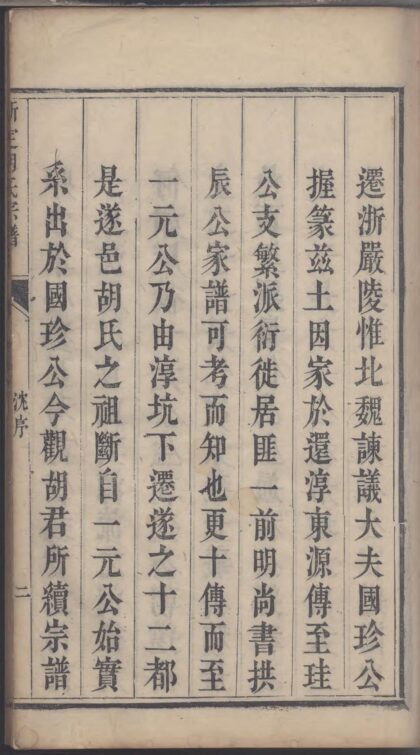 遷浙嚴陵惟北魏諫議大夫國珍公
握篆茲土因家於還淳東源傳至珪
公支繁派衍徙居匪一前明尚書拱
辰公家譜可考而知也更十傳而至
一元公乃由淳坑下遷遂之十二都
是遂邑胡氏之祖斷自一元公始實
系出於國珍公今觀胡君所續宗譜
胡氏宗譜
沈序
二